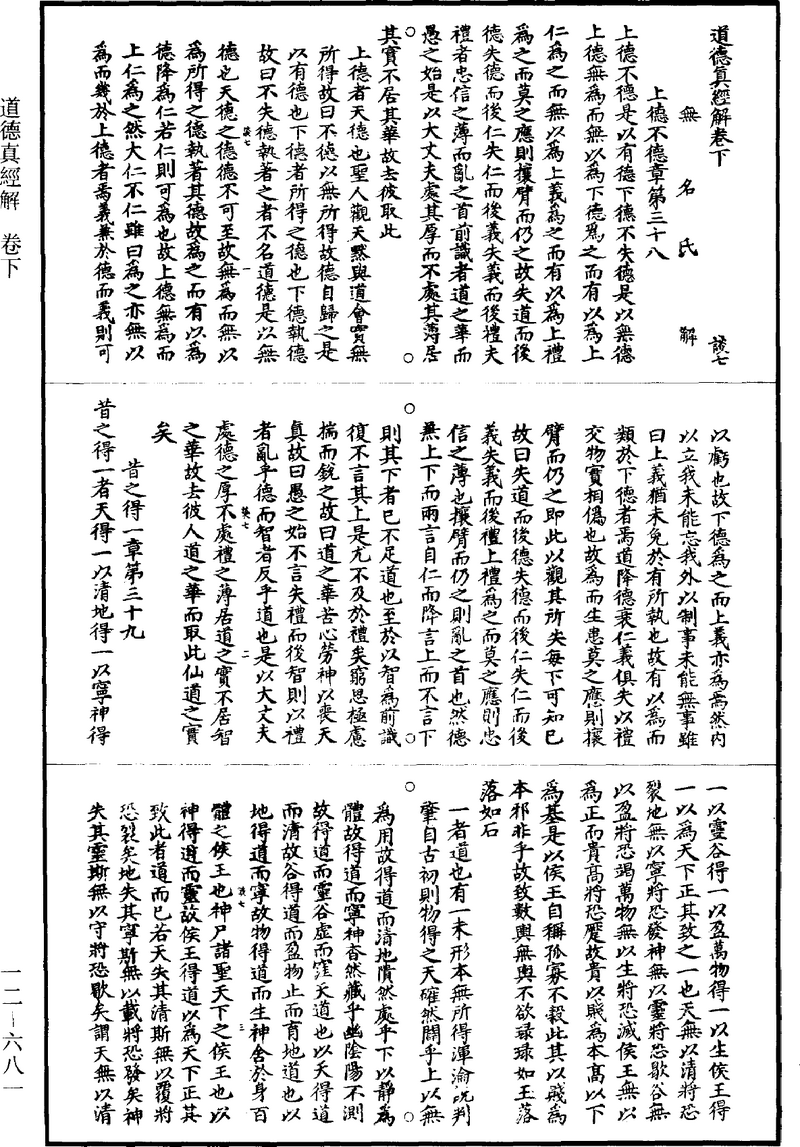 道德真經解卷下
無名氏解 談七
上德不德章第三十八
上德不德是以有德下德不失德是以無德
上德無為而無以為下德為之而有以為上
仁為之而無以為上義為之而有以為上禮
為之而莫之應則攘臂而仍之故失道而後
德失德而後仁失仁而後義失義而後禮夫
禮者忠信之薄而亂之首前識者道之華而
愚之始是以大丈夫處其厚而不處其薄居
其實不居其華故去彼取此
上德者天德也聖人觀天黙與道會實無
所得故曰不德以無所得故德自歸之是
以有德也下德者所得之德也下德執德
故曰不失德執著之者不名道德是以無
談七 一
德也天德之德德不可至故無為而無以
為所得之德執著其德故為之而有以為
德降為仁若仁則可為也故上德無為而
上仁為之然大仁不仁雖曰為之亦無以
為而幾於上德者焉義兼於德而義則可
以虧也故下德為之而上義亦為焉然内
以立我未能忘我外以制事未能無事雖
曰上義猶未免於有所執也故有以為而
類於下德者焉道降德衰仁義俱失以禮
交物實相偽也故為而生患莫之應則攘
臂而仍之即此以觀其所失每下可知已
故曰失道而後德失德而後仁失仁而後
義失義而後禮上禮為之而莫之應則忠
信之薄也攘臂而仍之則亂之首也然德
無上下而兩言自仁而降言上而不言下
則其下者已不足道也至於以智為前識
復不言其上是尤不及於禮矣窮思極慮
揣而銳之故曰道之華苦心勞神以喪天
真故曰愚之始不言失禮而後智則以禮
者亂乎德而智者反乎道也是以大丈夫
談七 二
處德之厚不處禮之薄居道之實不居智
之華故去彼人道之華而取此仙道之實
矣
昔之得一章第三十九
昔之得一者天得一以清地得一以寧神得
一以靈谷得一以盈萬物得一以生侯王得
一以為天下正其致之一也天無以清將恐
裂地無以寧將恐發神無以靈將恐歇谷無
以盈將恐竭萬物無以生將恐滅侯王無以
為正而貴高將恐蹷故貴以賤為本高以下
為基是以侯王自稱孤寡不穀此其以賤為
本邪非乎故致數輿無輿不欲琭琭如玉落
落如石
一者道也有一未形本無所得渾淪既判
肇自古初則物得之天確然闢乎上以無
為用故得道而清地隤然處乎下以靜為
體故得道而寧神杳然藏乎幽陰陽不測
故得道而靈谷虛而窪天道也以天得道
而清故谷得道而盈物止而育地道也以
地得道而寧故物得道而生神舍於身百
談七 三
體之侯王也神尸諸聖天下之侯王也以
神得道而靈故侯王得道以為天下正其
致此者道而已若天失其清斯無以覆將
恐裂矣地失其寧斯無以載將恐發矣神
失其靈斯無以守將恐歇矣謂天無以清
道德真經解 卷下
一二-六八一